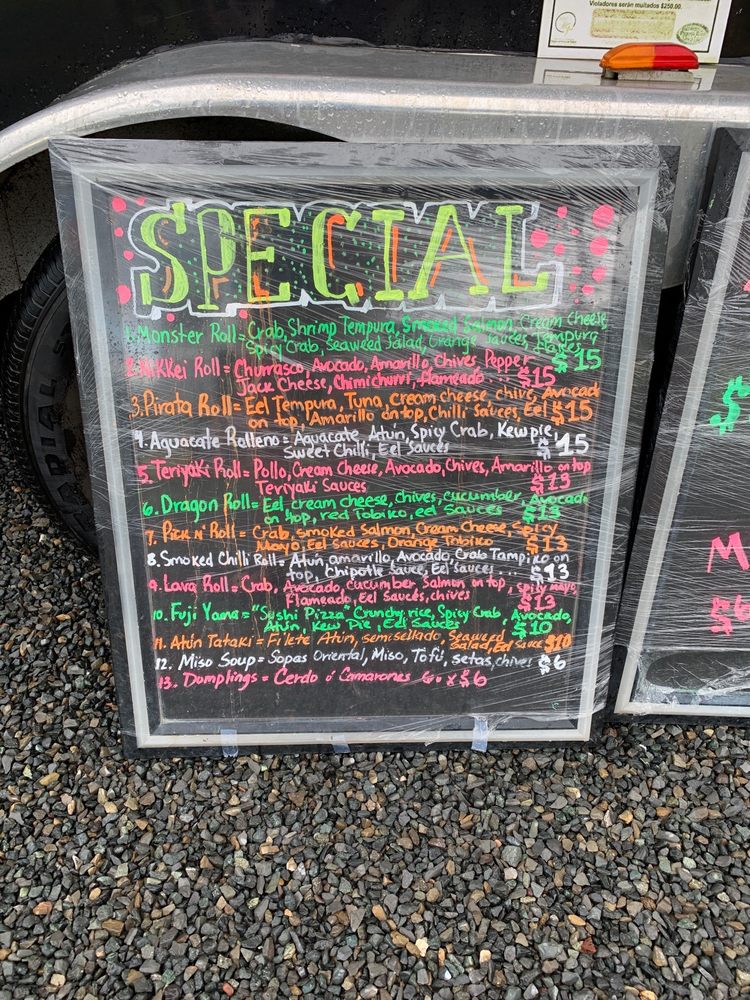 Violadores serán multados $250.00
SPECIAL
1. Monster Roll = Crab, Shrimp Tempura, Smoked Salmon, Cream Cheese,
Spicy Crab, Seaweed Salad, Orange Sauces, Tempura
Flakes $15
2. Nikkei Roll = Churrasco, Avocado, Amarillo, Chives, Pepper
Jack Cheese, Chimichurri, flameado... $15
3. Pirata Roll = Eel Tempura, Tuna, cream cheese, chive, Avocad
on top, Amarillo on top, Chilli Sauces, Eel $15
4. Aguacate Relleno = Aguacate, Atún, Spicy Crab, Kewpie,
Sweet Chilli, Eel Sauces $15
5. Teriyaki Roll = Pollo, Cream Cheese, Avocado, Chives, Amarillo on top
Teriyaki Sauces $13
6. Dragon Roll = Eel, cream cheese, chives, cucumber, Avocado
on top, red Tobiko, eel Sauces $13
7. Pick N' Roll = Crab, Smoked Salmon, Cream Cheese, Spicy
Mayo, Eel Sauces, Orange Tobiko $13
8. Smoked Chilli Roll = Atún, amarillo, Avocado, Crab Tampiko on
top, Chipotle Sauce, Eel Sauces... $13
9. Lava Roll = Crab, Avocado, cucumber, Salmon on top, spicy mayo,
Flameado, Eel Sauces, chives $13
10. Fuji Yama = "Sushi Pizza" Crunchy rice, Spicy Crab, Avocado,
Atún, Kew Pie, Eel Sauces $10
11. Atún Tataki = Filete Atún, semisellado, Seaweed
Salad, Eel Sauce $10
12. Miso Soup = Sopas Oriental, Miso, Tofú, setas, chives $6
13. Dumplings = Cerdo ó Camarones 6 x $6
$
M
$6